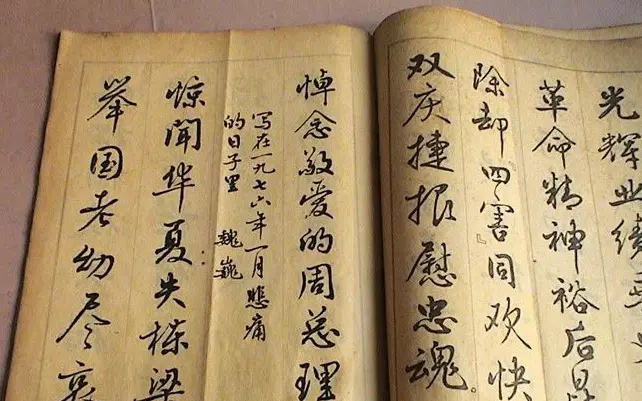 光辉业绩
革命精神裕后昆
除却四害』同欢快
双庆捷报慰忠魂。
悼念敬爱的周总理
写在一九七六年一月悲痛
的日子里 魏巍
惊闻华夏失栋梁
举国老幼尽哀